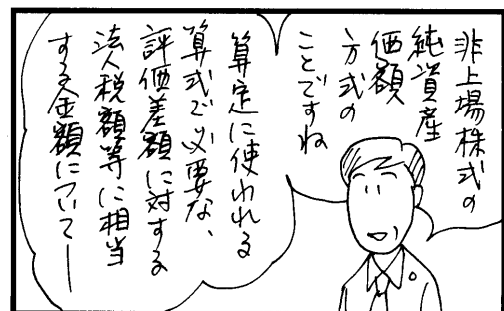 非上場株式の
純資産
価額
方式の
ことですね
算定に使われる
算式で必要な、
評価差額に対する
法人税額等に相当
する金額について―